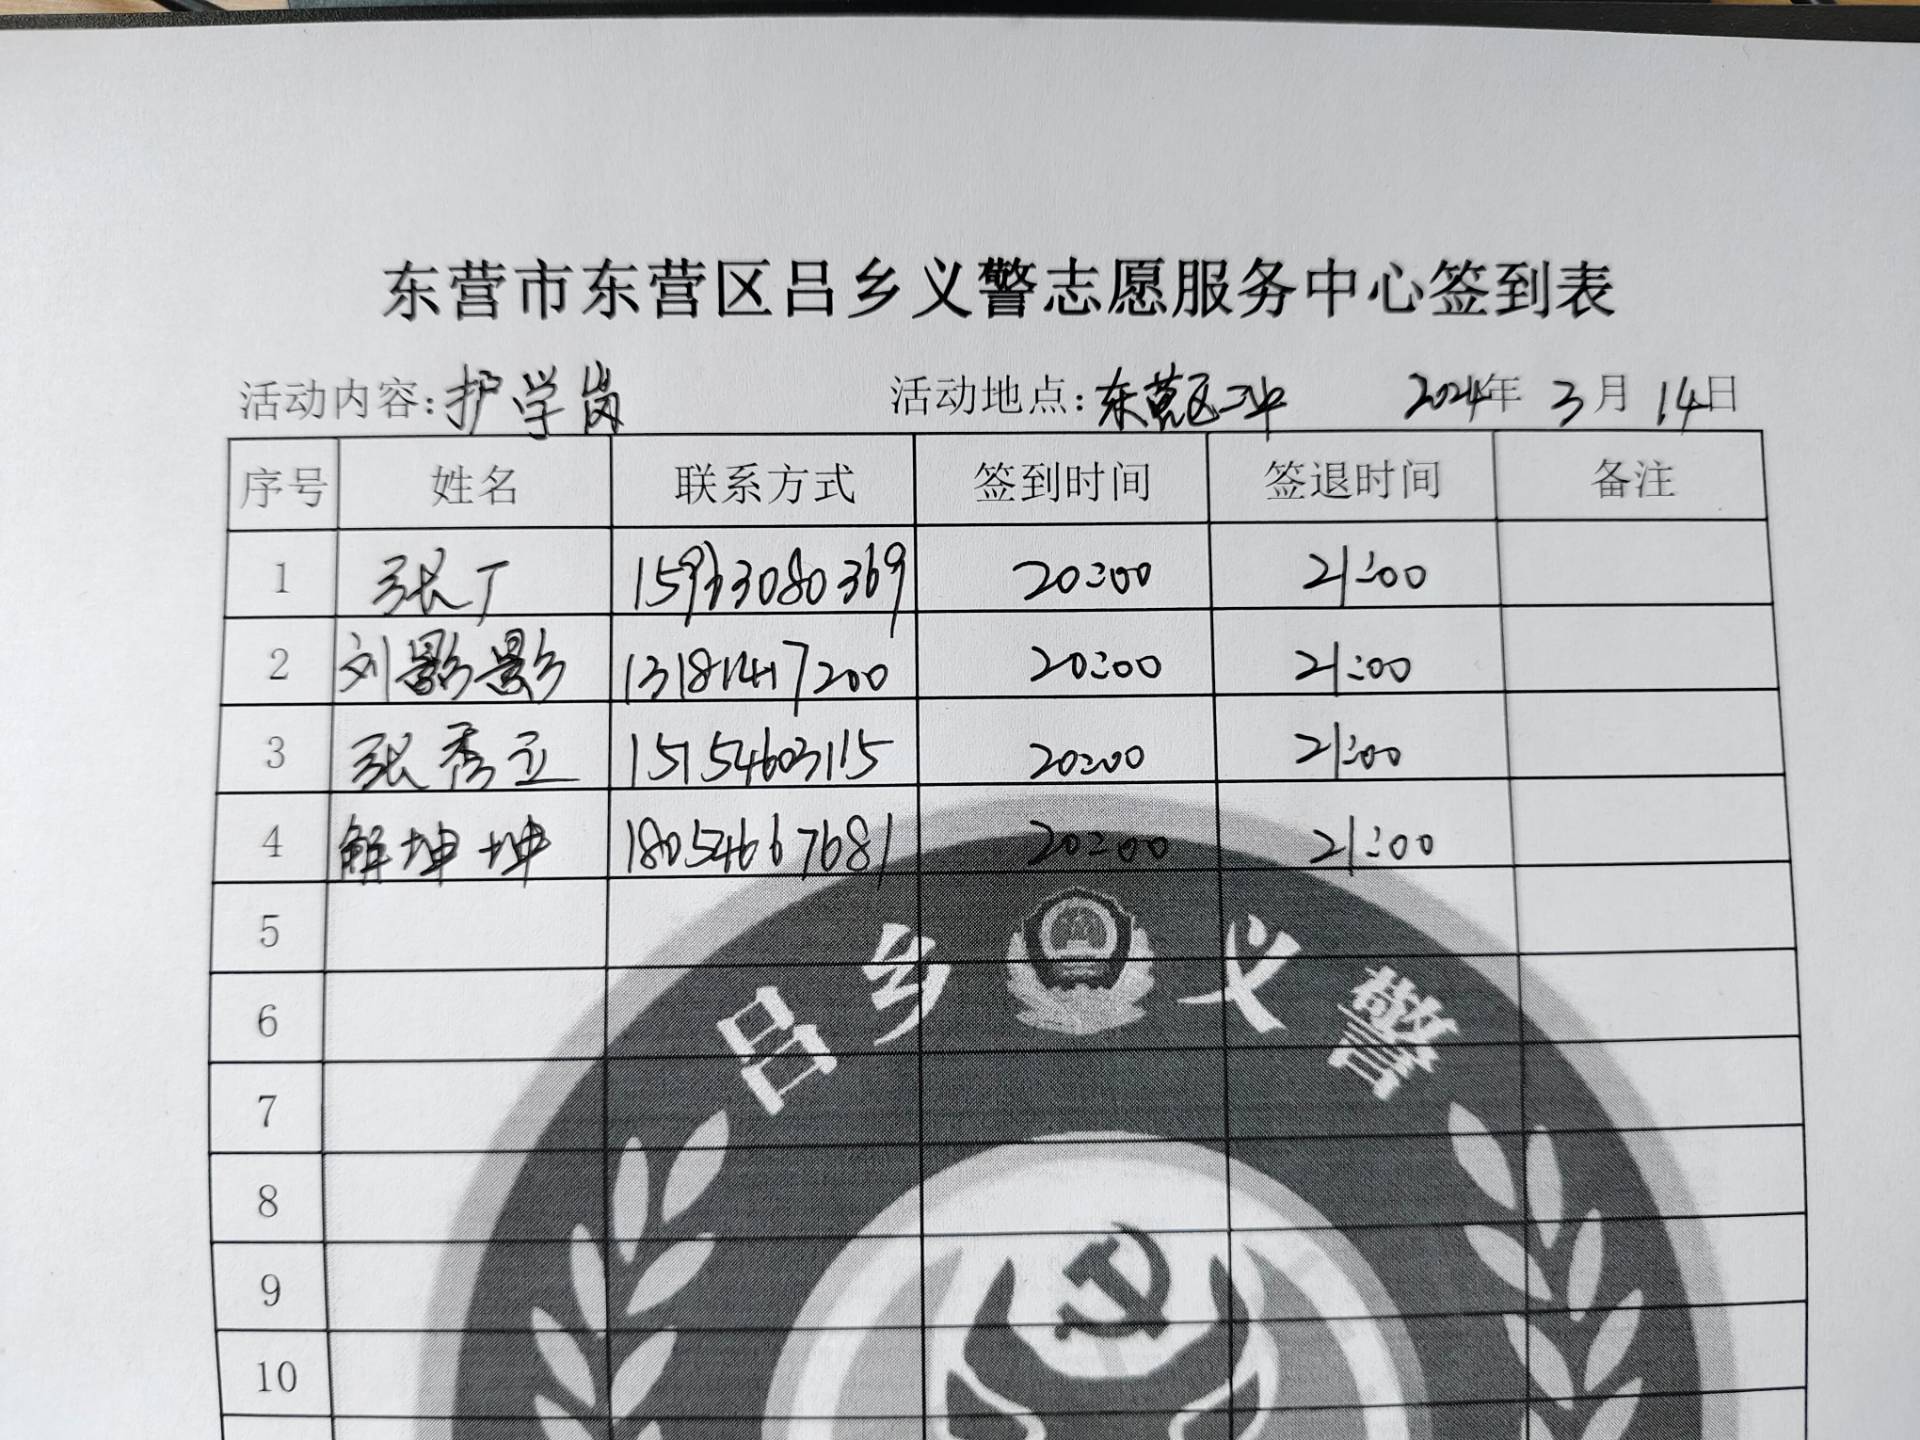 东营市东营区吕乡义警志愿服务中心签到表
活动内容:护学岗 活动地点:东营区二中 2024年 3月 14日
序号 姓名 联系方式 签到时间 签退时间 备注
1 张广 20:00 21:00
2 刘影影 13181417200 20:00 21:00
3 张秀立 15154603115 20:00 21:00
4 解坤坤 18054667681 20:00 21:00
5
6
7
8
9
10
吕乡义警